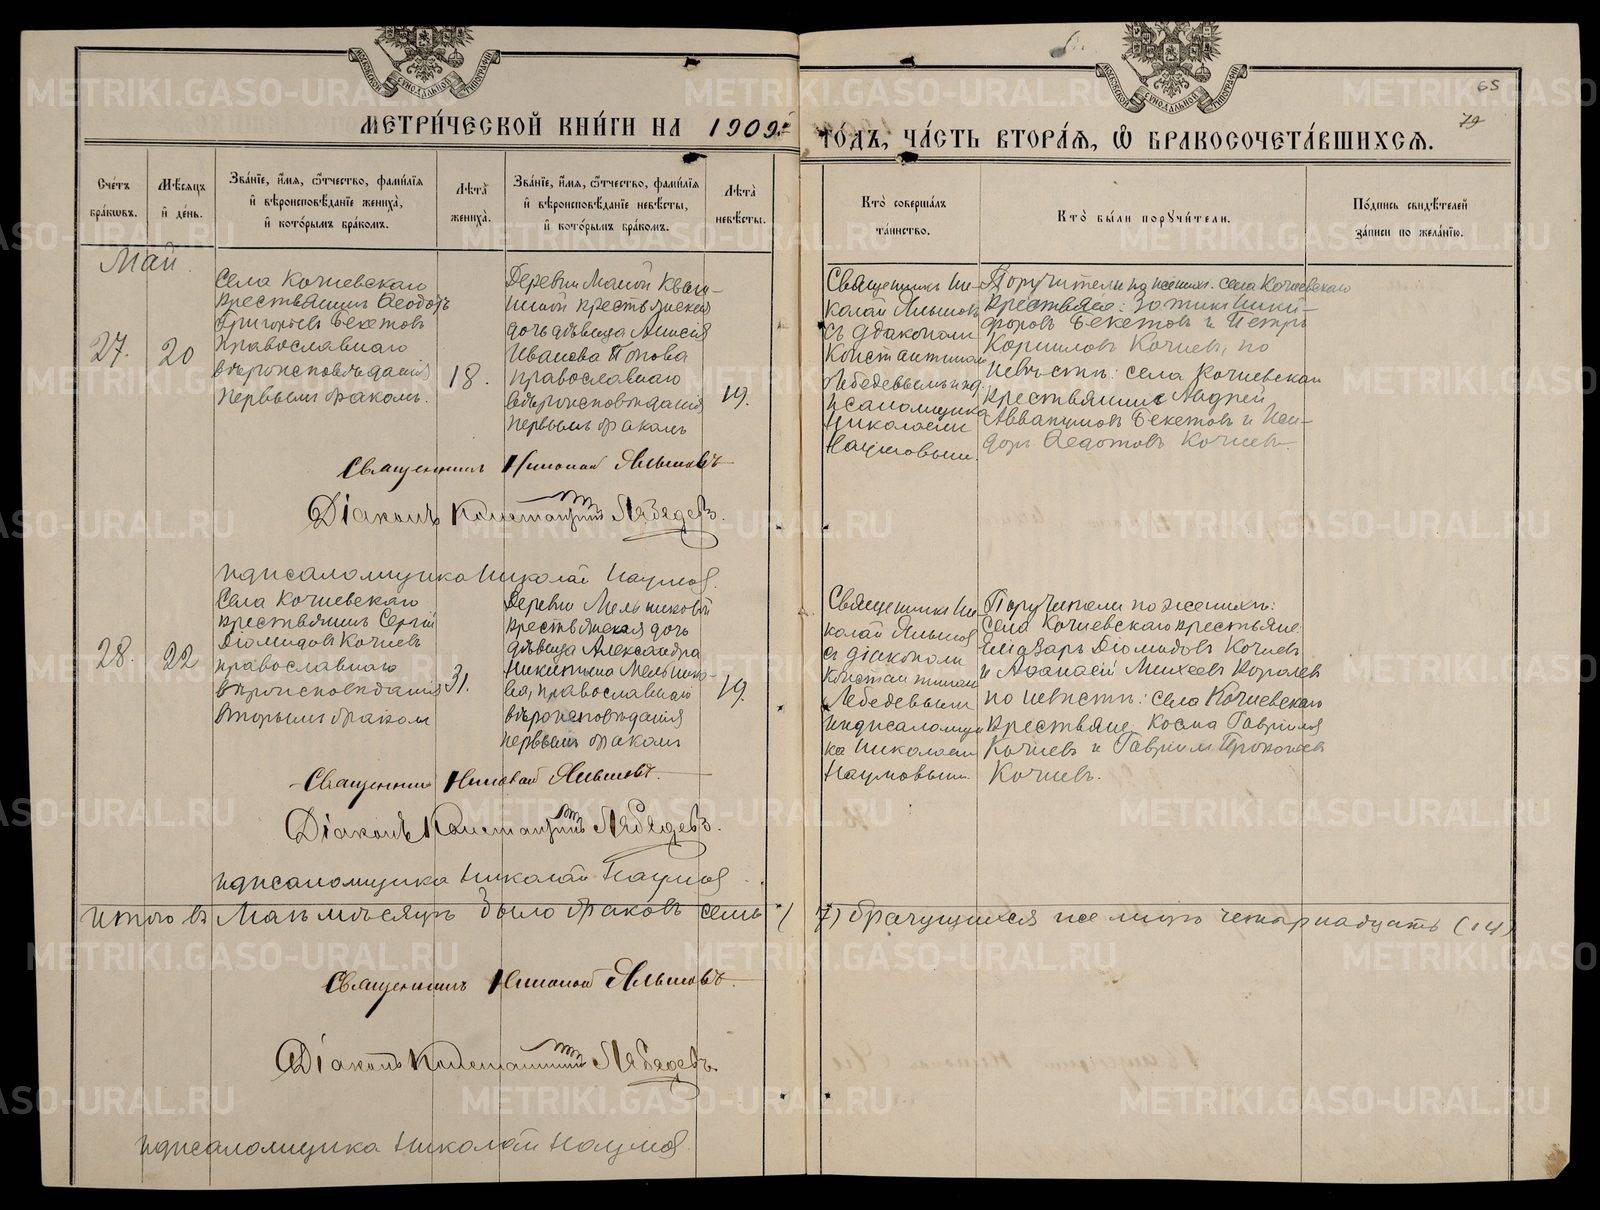 МЕТРИ́ЧЕСКОЙ КНИ́ГИ НА 1909й
ГО́ДЪ, ЧА́СТЬ ВТОРА́Я, Ѡ БРАКОСОЧЕТА́ВШИХСЯ.
65
79
Сче́тъ бра́ковъ.
Мѣ́сяцъ и҆ де́нь.
Зва́нїе, и҆́мя, ѻ҆́тчество, фами́лїя
и҆ вѣроисповѣ́данїе жениха̀,
и҆ кото́рымъ бра́комъ.
Лѣта̀ жениха̀.
Зва́нїе, и҆́мя, ѻ҆́тчество, фами́лїя
и҆ вѣроисповѣ́данїе невѣ́сты,
и҆ кото́рымъ бра́комъ.
Лѣта̀ невѣ́сты.
Кто̀ соверша́лъ
та́инство.
Кто̀ бы́ли порꙋчи́тели.
По́дпись свидѣ́телей
за́писи по жела́нїю.
Май
27.
20
Села Кочневскаго
крестьянинъ Ѳеодотъ
Григорьевъ Бекетовъ
православнаго
вѣроисповѣданія
первымъ бракомъ.
18.
Деревни Малой Кваш-
ниной крестьянская
дочь дѣвица Анисія
Иванова Попова
православнаго
вѣроисповѣданія
первымъ бракомъ
19.
Священникъ Ни-
колай Яльшовъ
съ діакономъ
Константиномъ
Лебедевымъ и д.
псаломщика
Николаемъ
Наумовымъ.
Поручители по женихѣ: села Кочневскаго
крестьяне: Зотикъ Ники-
форовъ Бекетовъ и Петръ
Корниловъ Кочневъ, по
невѣстѣ: села Кочневскаго
крестьянинъ Андрей
Аввакумовъ Бекетовъ и Иси-
доръ Ѳедотовъ Кочневъ.
Священникъ Николай Яльшовъ
Діаконъ Константинъ Лебедевъ.
и д псаломщика Николай Наумовъ.
28.
22
Села Кочневскаго
крестьянинъ Сергій
Діомидовъ Кочневъ
православнаго
вѣроисповѣданія
вторымъ бракомъ
31.
Деревни Мельниковой
крестьянская дочь
дѣвица Александра
Никитина Мельнико-
ва, православнаго
вѣроисповѣданія
первымъ бракомъ
19.
Священникъ Ни-
колай Яльшовъ
съ діакономъ
Константиномъ
Лебедевымъ
и и д псаломщи
ка Николаемъ
Наумовымъ.
Поручители по женихѣ:
села Кочневскаго крестьяне:
Діомидовъ Кочневъ
и Аѳанасій Михеевъ Королевъ
по невѣстѣ: села Кочневскаго
крестьяне: Косма Гавриловъ
Кочневъ и Гавріилъ Прокопьевъ
Кочневъ.
Священникъ Николай Яльшовъ.
Діаконъ Константинъ Лебедевъ.
и д псаломщика Николай Наумовъ
Итого въ Маѣ мѣсяцѣ было браковъ семь (7) брачущихся же лицъ четырнадцать (14)
Священникъ Николай Яльшовъ.
Діаконъ Константинъ Лебедевъ.
и д псаломщика Николай Наумовъ.
METRIKI.GASO-URAL.RU